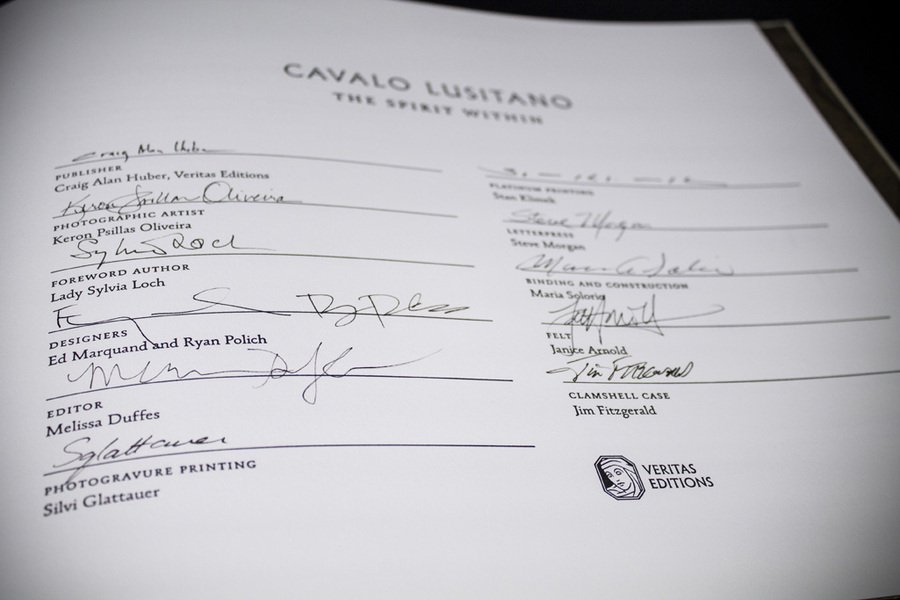 CAVALO LUSITANO
THE SPIRIT WITHIN
Craig Alan Huber
PUBLISHER
Craig Alan Huber, Veritas Editions
Keron Psillas Oliveira
PHOTOGRAPHIC ARTIST
Keron Psillas Oliveira
Sylvia Loch
FOREWORD AUTHOR
Lady Sylvia Loch
DESIGNERS
Ed Marquand and Ryan Polich
EDITOR
Melissa Duffes
Sglattauer
PHOTOGRAVURE PRINTING
Silvi Glattauer
PLATINUM PRINTING
Stan Klimek
Steve Morgan
LETTERPRESS
Steve Morgan
BINDING AND CONSTRUCTION
Maria Solorio
FELT
Janice Arnold
Jim Fitzgerald
CLAMSHELL CASE
Jim Fitzgerald
VERITAS
EDITIONS